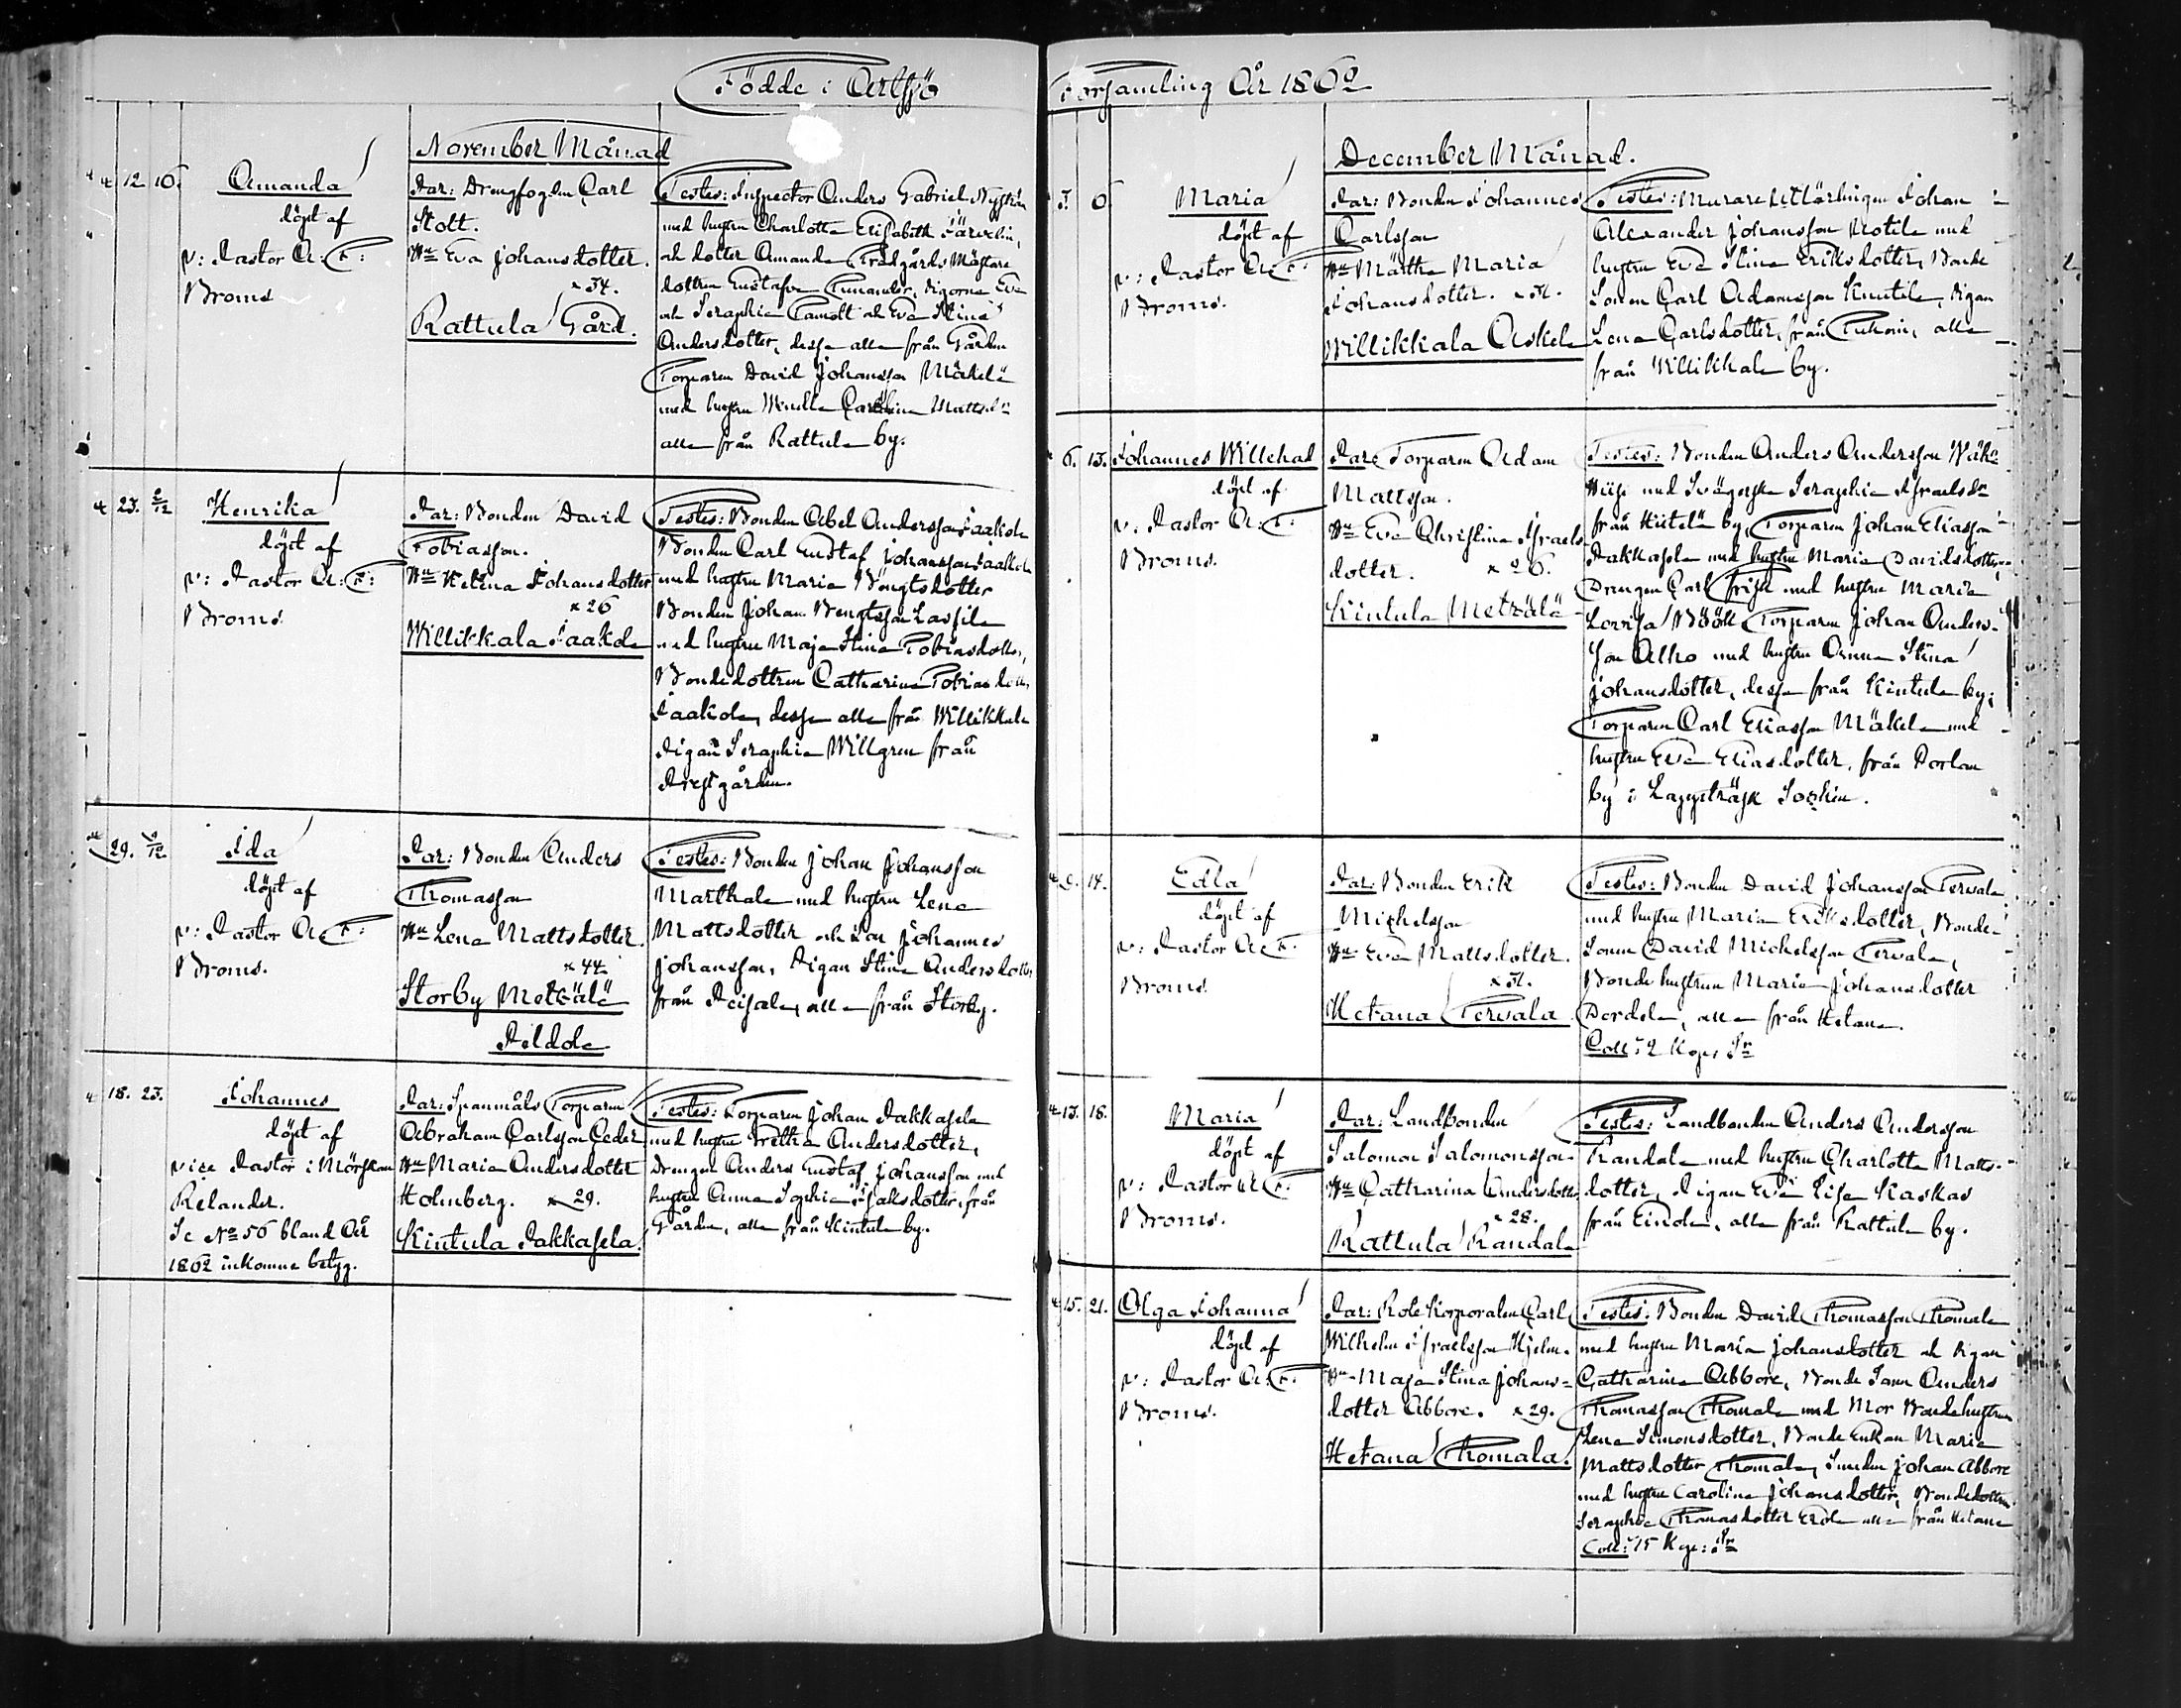 Födde i Artsjö
November Månad
12 16.
Amanda
döpt af
v: Pastor A: F:
Broms
Par: Drengfogden Carl
Stolt.
Hu Eva Johansdotter.
× 34.
Rattula Gård.
Testes: Inspector Anders Gabriel
med hustru Charlotta Elisabeth
och dotter Amanda Trädgårds Mästare
dottren Gustafva Pigorna Eva
och Seraphia och Eva Stina
Andersdotter, dessa alla från Gården
Torparen David Johansson Mäkelä
med hustru Carolina Mattsdr
alla från Rattula by.
23. 2/12
Henrika
döpt af
v: Pastor A: F:
Broms
Par: Bonden David
Tobiasson.
Hu Helena Johansdotter
× 26
Willikkala Jaakola
Testes: Bonden Abel Andersson Jaakola
Bonden Carl Gustaf Johansson Jaakola
med hustru Maria Bengtsdotter
Bonden Johan Bengtsson Lassila
med hustru Maja Stina Tobiasdotter,
Bondedottren Catharina Tobiasdotter
Jaakola, dessa alla från Willikkala
Pigan Seraphia Willgren från
Prestgården.
29. /12
Ida
döpt af
v: Pastor A: F:
Broms.
Par: Bonden Anders
Thomasson
Hu Lena Mattsdotter.
× 44
Storby Metzälä
Testes: Bonden Johan Johansson
Marthala med hustru Lena
Mattsdotter och Son Johannes
Johansson, Pigan Stina Andersdotter
från alla från Storby.
18. 23.
Johannes
döpt af
vice Pastor i Mörskom
Relander.
Se No 56 bland År
1862 inkomne betyg.
Par: Spanmåls Torparen
Abraham Carlsson Ceder
Hu Maria Andersdotter
Holmberg. × 29.
Kintula Pakkasela.
Testes: Torparen Johan Pakkasela
med hustru Andersdotter,
Drengen Anders Gustaf Johansson med
hustru Anna Sophia från
Gården, alla från Kintula by.
Församling År 1862
December Månad.
3. 6
Maria
döpt af
v: Pastor A: F:
Broms.
Par: Bonden Johannes
Carlsson
Hu Märtha Maria
Johansdotter. × 31.
Willikkala Askela
Testes: Murare Johan
Alexander Johansson med
hustru Eva Stina Eriksdotter, Bonde
Sonen Carl Adamsson Knutila, Pigan
Lena Carlsdotter, från alla
från Willikkala by.
6. 13.
Johannes Willehad
döpt af
v: Pastor A: F:
Broms.
Par: Torparen Adam
Mattsson.
Hu Eva Christina Israels-
dotter. × 26.
Kintula Metzälä
Testes: Bonden Anders Andersson
med Svägerska Seraphia Israelsdr
från by, Torparen Johan Eliasson
Pakkasela med hustru Maria Davidsdotter,
Drengen Carl Frisk med hustru Maria
Lovisa Böök Torparen Johan Anders-
son Alho med hustru Anna Stina
Johansdotter, dessa från Kintula by;
Torparen Carl Eliasson Mäkelä med
hustru Eva Eliasdotter, från Porlom
by i Lappträsk Socken.
9. 14.
Edla
döpt af
v: Pastor A: F:
Broms.
Par: Bonden Erik
Michelsson
Hu Eva Mattsdotter.
× 31.
Hetana Tervala
Testes: Bonden David Johansson Tervala
med hustru Maria Eriksdotter, Bonde-
Sonen David Michelsson Tervala,
Bonde hustrun Maria Johansdotter
Dordela, alla från Hetana.
Coll: 2 Kop: Sr
13. 16.
Maria
döpt af
v: Pastor A: F:
Broms.
Par: Landbonden
Salomon Salomonsson
Hu Catharina Andersdotter
× 28.
Rattula Randala
Testes: Landbonden Anders Andersson
Randala med hustru Charlotta Matts-
dotter, Pigan Eva Lisa Kaskas
från Eerola, alla från Rattula by.
15. 21.
Olga Johanna
döpt af
v: Pastor A: F:
Broms.
Par: Rote Korporalen Carl
Wilhelm Israelsson Hjelm.
Hu Maja Stina Johans-
dotter Abbore. × 29.
Hetana Thomala.
Testes: Bonden David Thomasson Thomala
med hustru Maria Johansdotter och Pigan
Catharina Abbore, Bonde Sonen Anders
Thomasson Thomala med Mor Bondehustrun
Lena Simonsdotter, Bonde Enkan Maria
Mattsdotter Thomala, Smeden Johan Abbore
med hustru Carolina Johansdotter, Bondedottren
Seraphia Thomasdotter Erola alla från Hetana
Coll: 15 Kop: Sr